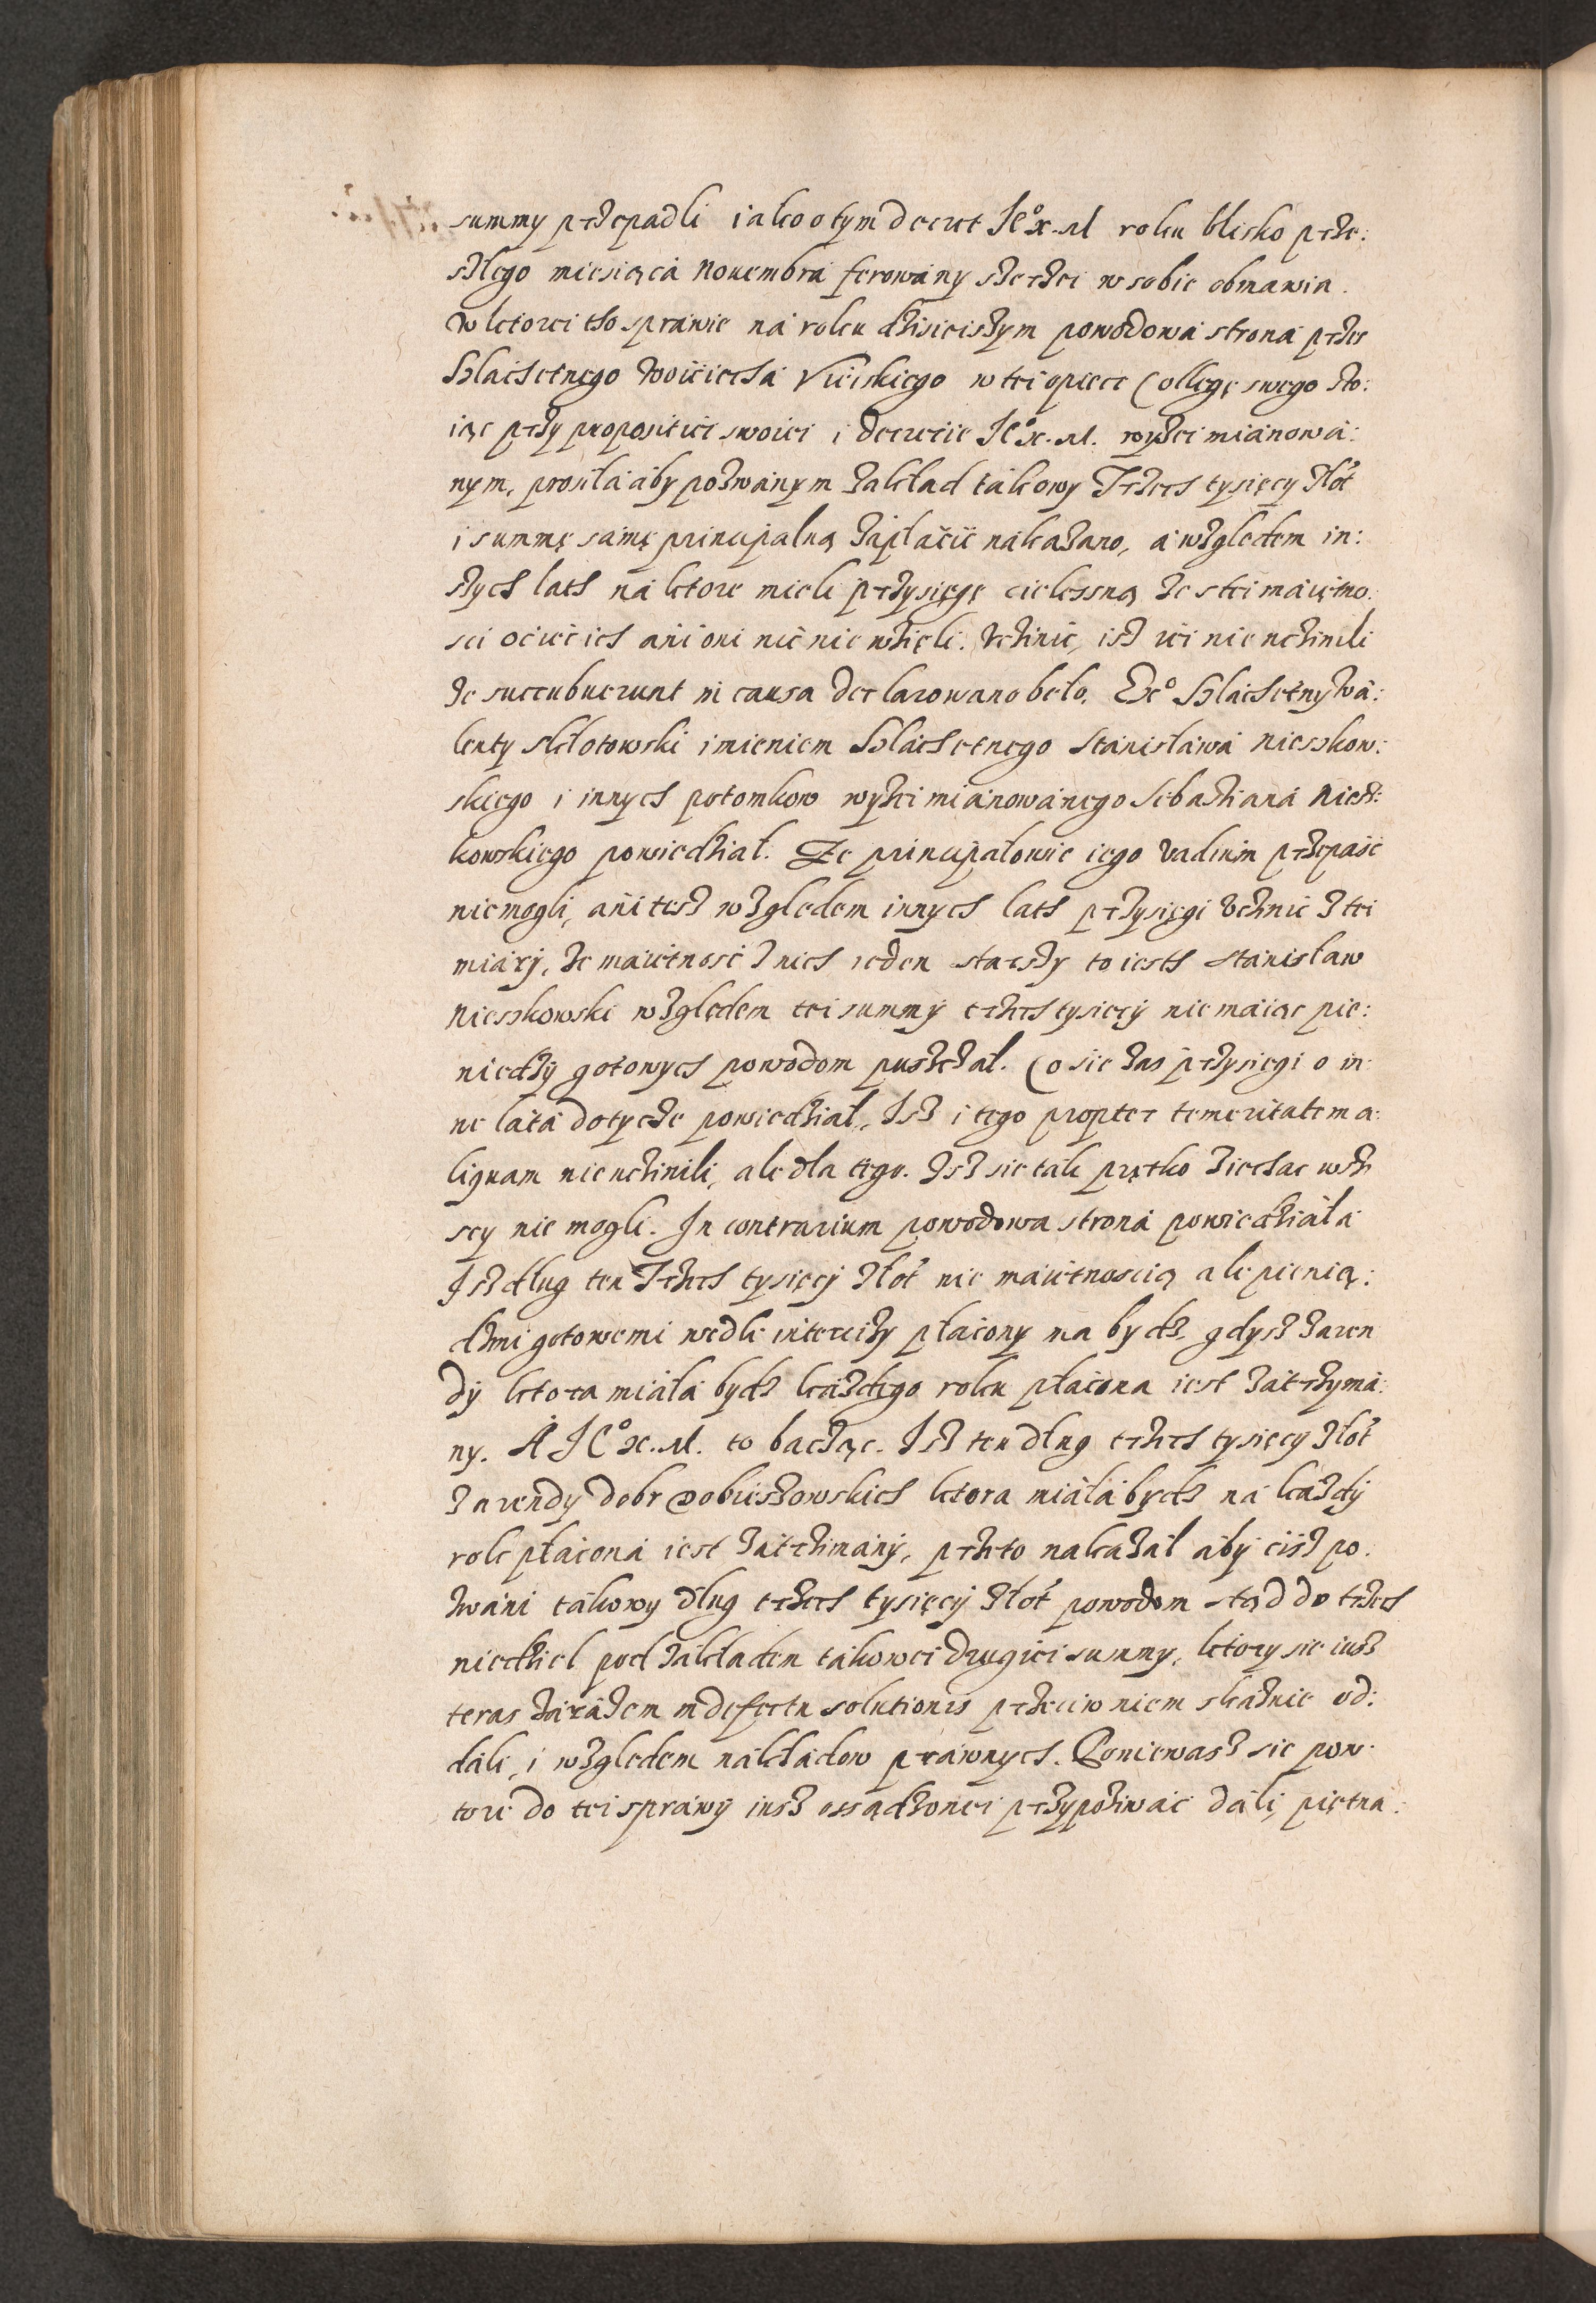 summy przepadli iako o tym decret Je° x. M roku blisko prze:
szłego miesiąca Nouembra ferowany szerzei w sobie obmawia.
W ktorei tho sprawie na roku dzisieiszym powodowa strona przez
Szlachetnego Woiciecha Vieiskiego w tei opiece Collegę swego sto:
iąc przy propositiei swoiei i decrecie Je° x. M. wyżei mianowa:
nym, prosiła aby pozwanym zakład takowy Trzech tysięcy złot
i summę samę principalną zapłacić nakazano, a względem in:
szych lath na ktore mieli przysięgę cielessną że s tei maiętno:
sci oćiec ich ani oni nić nie wzięli. Vczinić, isz iei nie uczinili
że succubuerunt in causa declarowano beło. Ex° Szlachetny Wa:
lenty Skłotowski imieniem Szlachetnego Stanisława Nieszkow:
skiego i innych potomkow wyżei mianowanego Sebastiana Niesz:
kowskiego powiedział. Że principałowie iego vadium przepaść
nie mogli, ani tesz względem innych lath przysięgi vczinić z tei
miary, że maiętność z nich ieden starszy to iesth Stanisław
Nieszkowski względem tei summy trzech tysięcy nie maiąc pie:
niedzy gotowych powodom puszczał. Co sie zas przysięgi o in:
ne lata dotycze powiedział, Isz i tego propter temeritatem a:
liquam nie uczinili, ale dla tego. Isz sie tak prętko ziechac wszi
scy nie mogli. In contrarium powodowa strona powiedziała
Isz dług ten Trzech tysięcy złot nie maiętnoscią ale pienią:
dzmi gotowemi wedle intercizy płacony ma bydz, gdysz z aren
dy ktora miała bydz każdego roku płacona iest zatrzyma:
ny. A Je° x. M. to bacząc. Isz ten dług trzech tysięcy złot
z arendy dobr Dobieszowskich ktora miała bydz na każdy
rok płacona iest zatrzimany, przeto nakazał aby ciisz po:
zwani takowy dług trzech tysięcy złot powodom stąd do trzech
niedziel pod zakładem takowei drugiei summy, ktory sie iusz
teras zarazem in defectu solutionis przeciw niem skaznie od:
dali, i względem nakładow prawnych. Poniewasz sie pow:
tore do tei sprawy iusz ossądzonei przypoziwać dali, piętna: